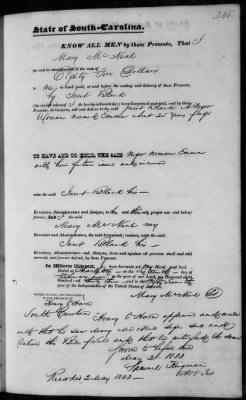 State of South-Carolina.
KNOW ALL MEN by these Presents, That I
Mary McNeal
for and in consideration of the sum of
Eighty Five Dollars
to Me in hand paid, at and before the sealing and delivery of these Presents,
by Jacob Bland
(the receipt whereof I do hereby acknowledge) have bargained and sold, and by these
Presents, do bargain, sell and deliver to the said Jacob Bland A Negro
Woman named about 25 years of age
TO HAVE AND TO HOLD, THE SAID Negro Woman
with her future issue and increase
unto the said Jacob Bland his
Executors, Administrators and Assigns, to his and their only proper use and behoof,
forever. And I the said
Mary McNeal my
Executors and Administrators, the said bargained premises, unto the said
Jacob Bland his
Executors, Administrators and Assigns, from and against all persons shall and will
warrant, and forever defend, by these Presents.
In Witness Whereof, I have hereunto set My Hand and Seal
Dated at Charleston on the day of
in the year of our Lord one thousand eight
hundred and thirty and in the
year of the Independence of the United States of America.
Mary McNeal
IN THE PRESENCE OF
Henry O'Hara
South Carolina Henry O'Hara appeared and made
oath that he saw Mary McNeal sign seal and
deliver the
Sworn to before me
May 2 1833
Samuel
Recorded 2 May 1833